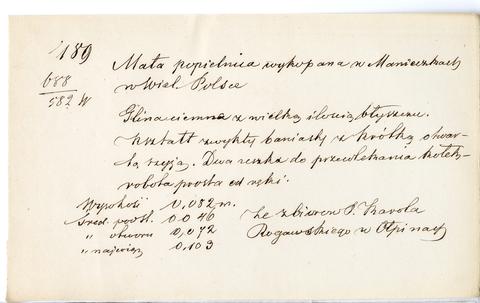 189
688
582 W
Mała popielnica wykopana w Manieczkach
w Wiel. Polsce
Glina ciemna z wielką ilością błyszczu.
Kształt zwykły baniasty z krótką otwar-
tą szyją. Dwa uszka do przewlekania
robota prosta od ręki.
Wysokość 0,082 m.
Śred. podst. 0.046
" otworu 0,072
" najwięk 0,109
Ze zbiorów P. Karola
Rogawskiego w Ołpinach